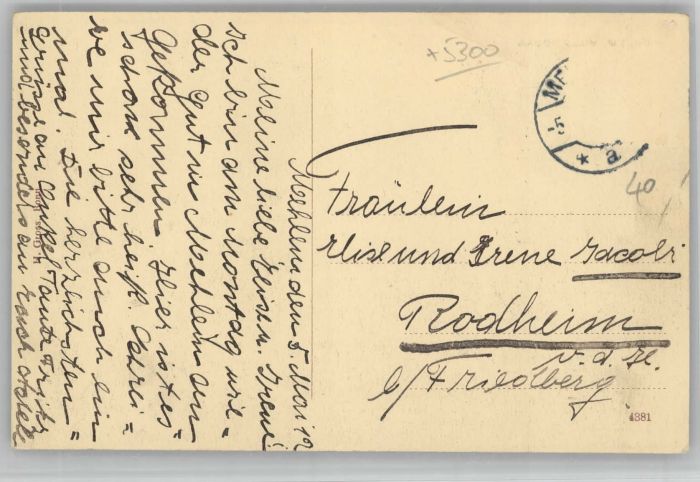 Mehlem den 5. Mai 12
Meine liebe Elise u. Irene!
Ich bin am Montag wie =
der gut in Mehlem an
gekommen. Hier ist es
schon sehr heiß. Schrei =
be mir bitte auch ein
mal. Die herzlichsten =
Grüße an Onkel Tante Fritz
und besonders an Euch
+5300
40
Fräulein
Elise und Irene Jacobi
Rodheim
v. d. H.
b/Friedberg
4381
* a